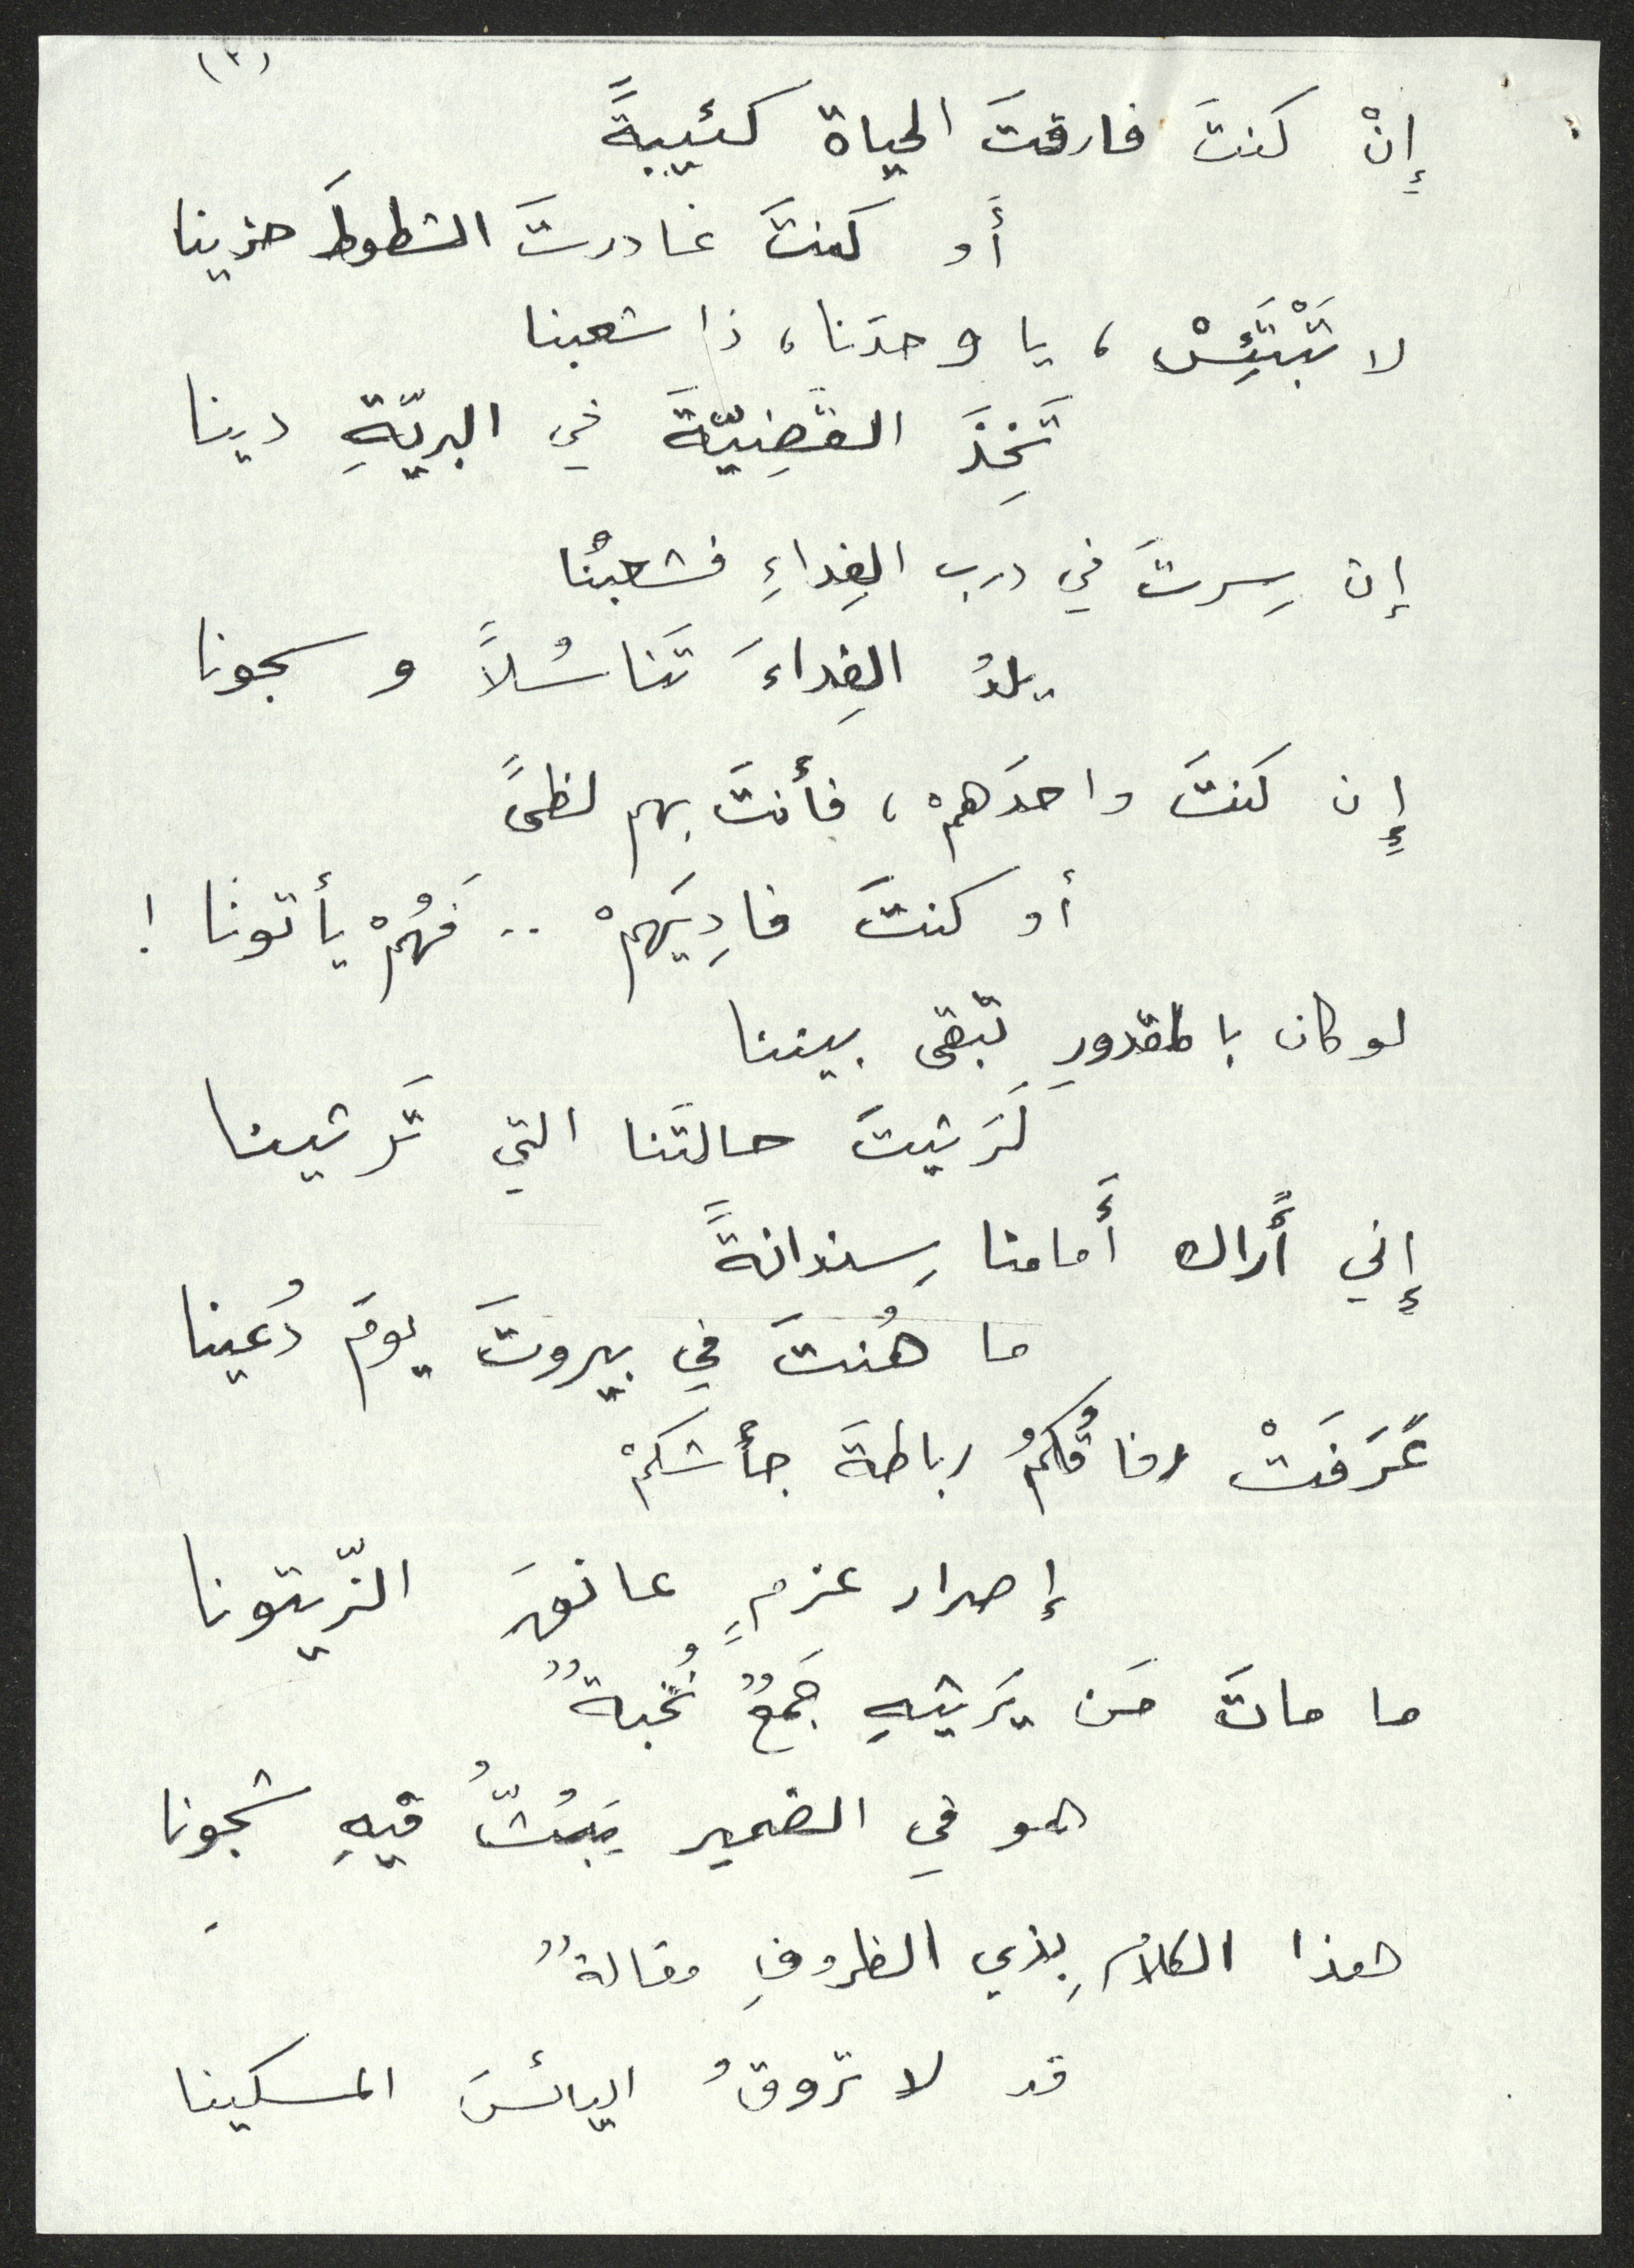 (٢)
إِنْ كنتَ فارقتَ الحياة كئيبةً
أَو كنتَ غادرتَ الشطوطَ حزينا
لا تَبْتَئِسْ ، يا وحدَنا ، ذا شعبنا
تَخِذَ القضِيّةَ في البريّةِ دينا
إن سِرتَ في درب الفِداءِ فشعبُنا
يلدُ الفِداءَ تَناسُلاً وسجونا
إِن كنتَ واحدَهمْ ، فأنتَ بهم لظىً
أو كنتَ فادِيَهمْ .. فَهُمْ يأتونا !
لو كان بالمقدورِ تبقى بيننا
لَرَثيتَ حالتَنا التي تَرثينا
إِني أَراك أَمامنا سِندانةً
ما هُنتَ في بيروتَ يومَ دُعينا
عَرَفَتْ رفاقُكمُ رباطةَ جأشكمْ
إصرار عزمٍ عانقَ الزّيتونا
ما ماتَ مَن يَرثيهِ جَمعٌ نُخبةٌ
هو في الضمير يَبُثُّ فيهِ شجونا
هذا الكلامُ بِذي الظروفِ مقالةٌ
قد لا تروقُ اليائسَ المسكينا